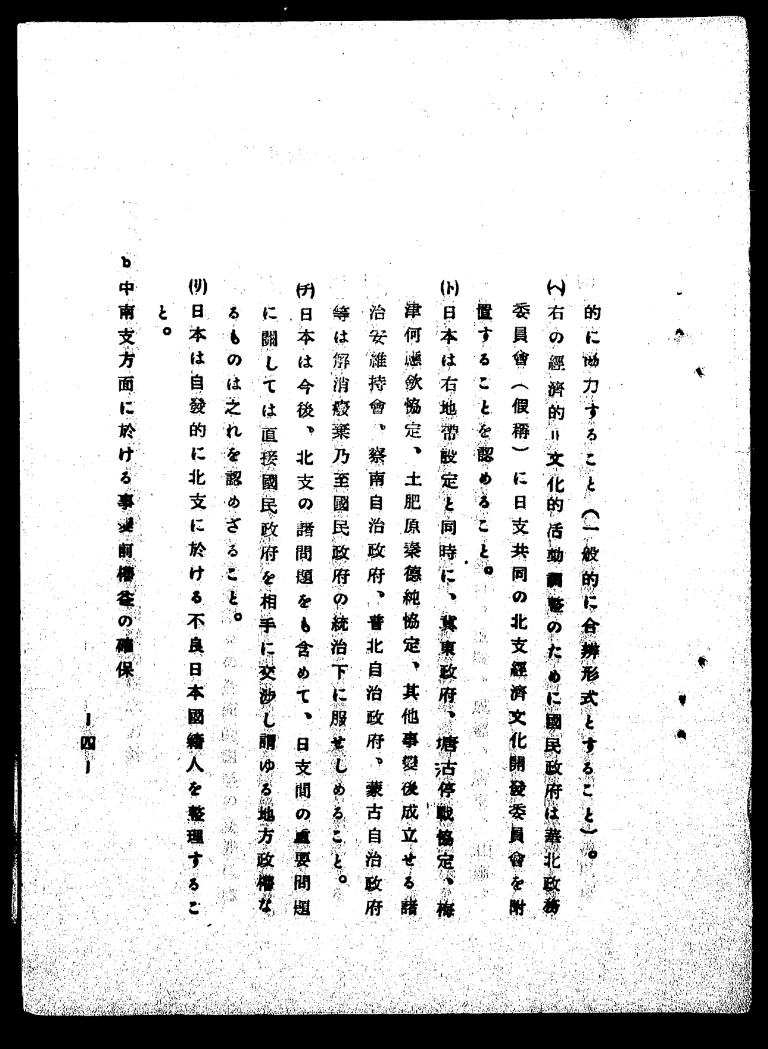 的に協力すること（一般的に合辨形式とすること）。
(ヘ)右の經濟的＝文化的活動調整のために國民政府は華北政務
委員會（假稱）に日支共同の北支經濟文化開發委員會を附
置することを認めること。
(ト)日本は右地帶設定と同時に、冀東政府、塘沽停戰協定、梅
津何應欽協定、土肥原秦德純協定、其他事變後成立せる諸
治安維持會、察南自治政府、晉北自治政府、蒙古自治政府
等は解消廢棄乃至國民政府の統治下に服せしめること。
(チ)日本は今後、北支の諸問題をも含めて、日支間の重要問題
に關しては直接國民政府を相手に交渉し謂ゆる地方政權な
るものは之れを認めざること。
(リ)日本は自發的に北支に於ける不良日本國籍人を整理するこ
と。
b中南支方面に於ける事變前權益の確保
—四—